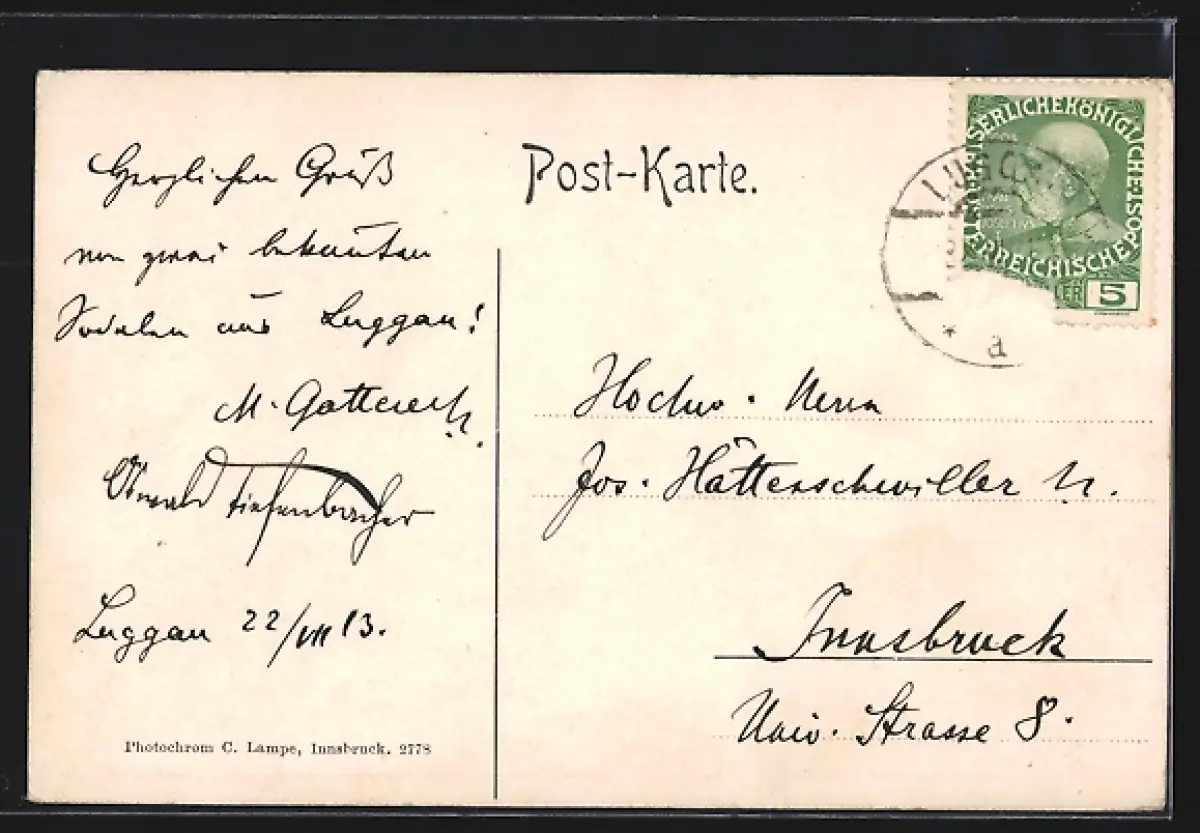 Herzlichen Gruß
von zwei bekannten
Sodalen aus Luggau!
M. Gatterer
Oswald Tiefenbacher
Luggau 22/VII 13.
Photochrom C. Lampe, Innsbruck. 2778
Post-Karte.
KAISERLICHEKÖNIGLICHE ÖSTERREICHISCHE POST
5
LUGGAU
* a
Hochw. Herrn
Jos. Hättenschwiller
Innsbruck
Univ. Strasse 8.